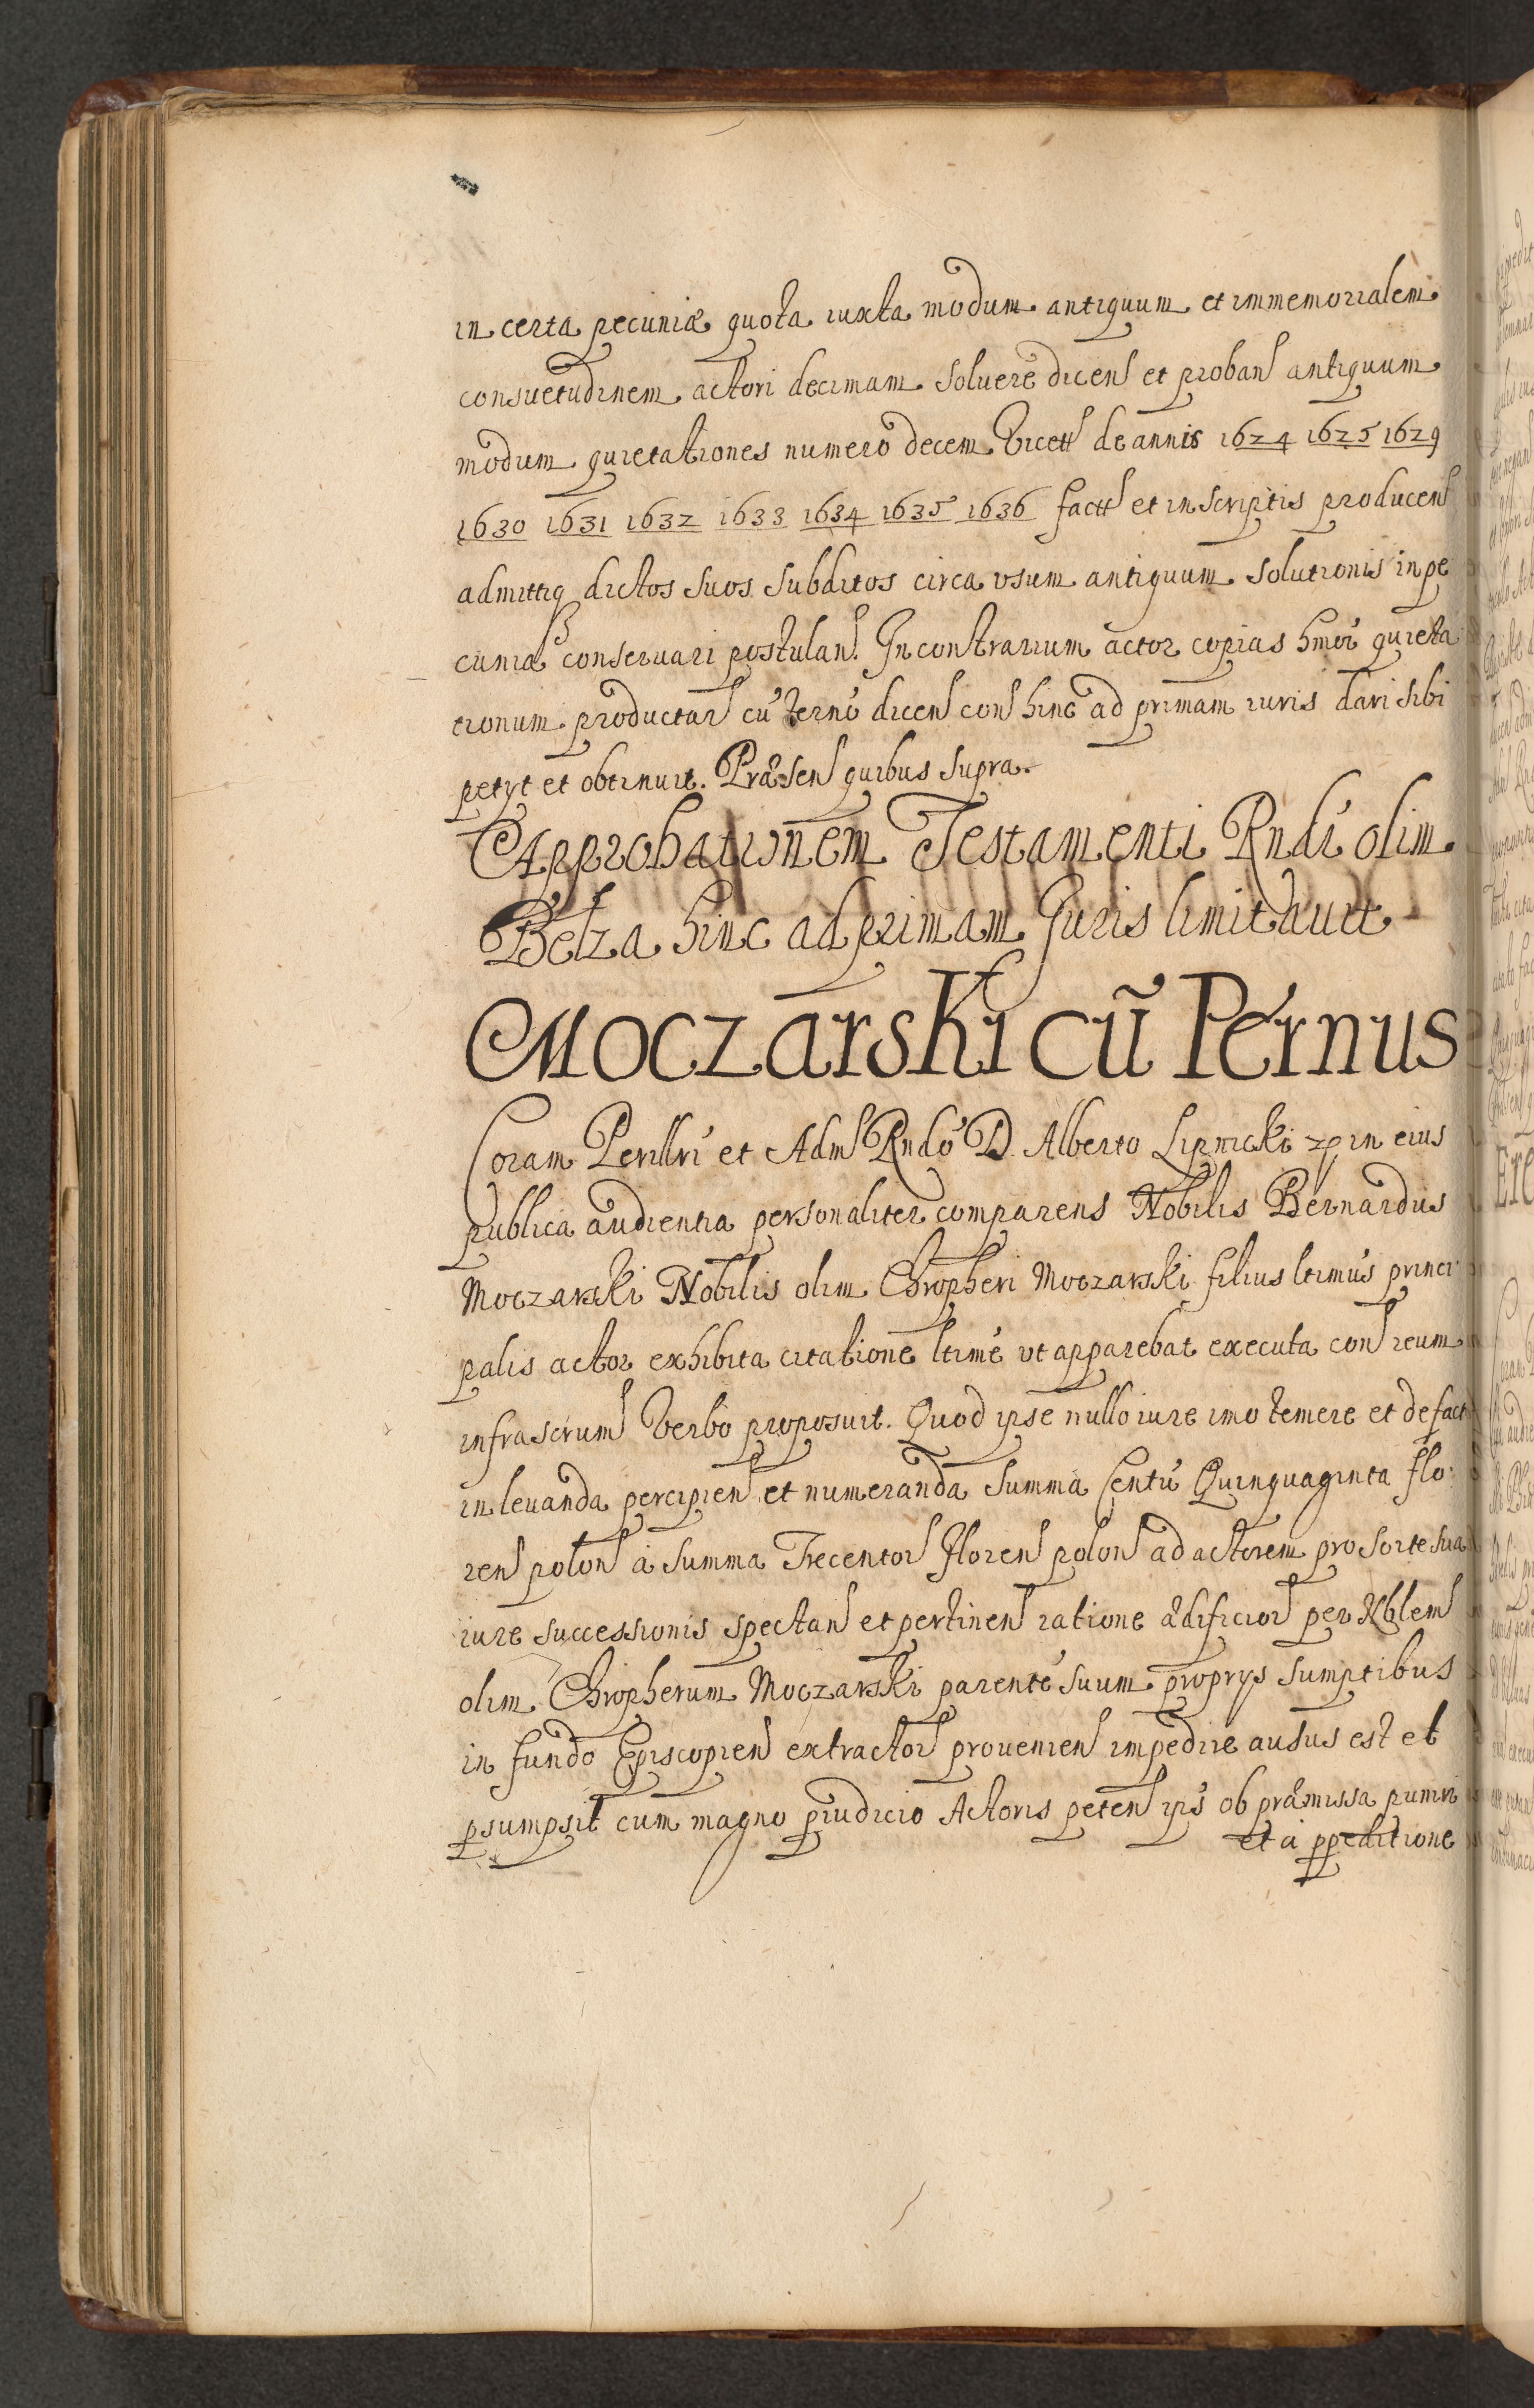 in certa pecuniæ quota iuxta modum antiquum et immemorialem
consuetudinem actori decimam soluere dicen et proban antiquum
modum quietationes numero decem vicett de annis 1624 1625 1629
1630 1631 1632 1633 1634 1635 1636 factt et in scriptis producen
admittiq dictos suos subditos circa vsum antiquum solutionis in pe
cunia conseruari postulan. In contrarium actor copias hmoi quieta
tionum productar cu terno dicen con hinc ad primam iuris dari sibi
petyt et obtinuit. Præsen quibus supra.
Approbationem Testamenti Rndi olim
Belza hinc ad primam Iuris limitauit
Moczarski cũ Pernus
Coram Perillri et Adm Rndo D. Alberto Lipnicki in eius
publica audientia personaliter comparens Nobilis Bernardus
Moczarski Nobilis olim Chropheri Moczarski filius ltimus princi
palis actor exhibita citatione ltime vt apparebat executa con reum
infrascrum verbo proposuit. Quod ipse nullo iure imo temere et de fact
in leuanda percipien et numeranda summa Centu Quinquaginta flo:
ren polon a summa Trecentor floren polon ad actorem pro sorte sua
iure successionis spectan et pertinen ratione ædificior per Nblem
olim Chropherum Moczarski parente suum proprys sumptibus
in fundo Episcopien extractor prouenien impedire ausus est et
psumpsit cum magno piudicio Actoris peten ips ob præmissa puniri
et a ppeditione